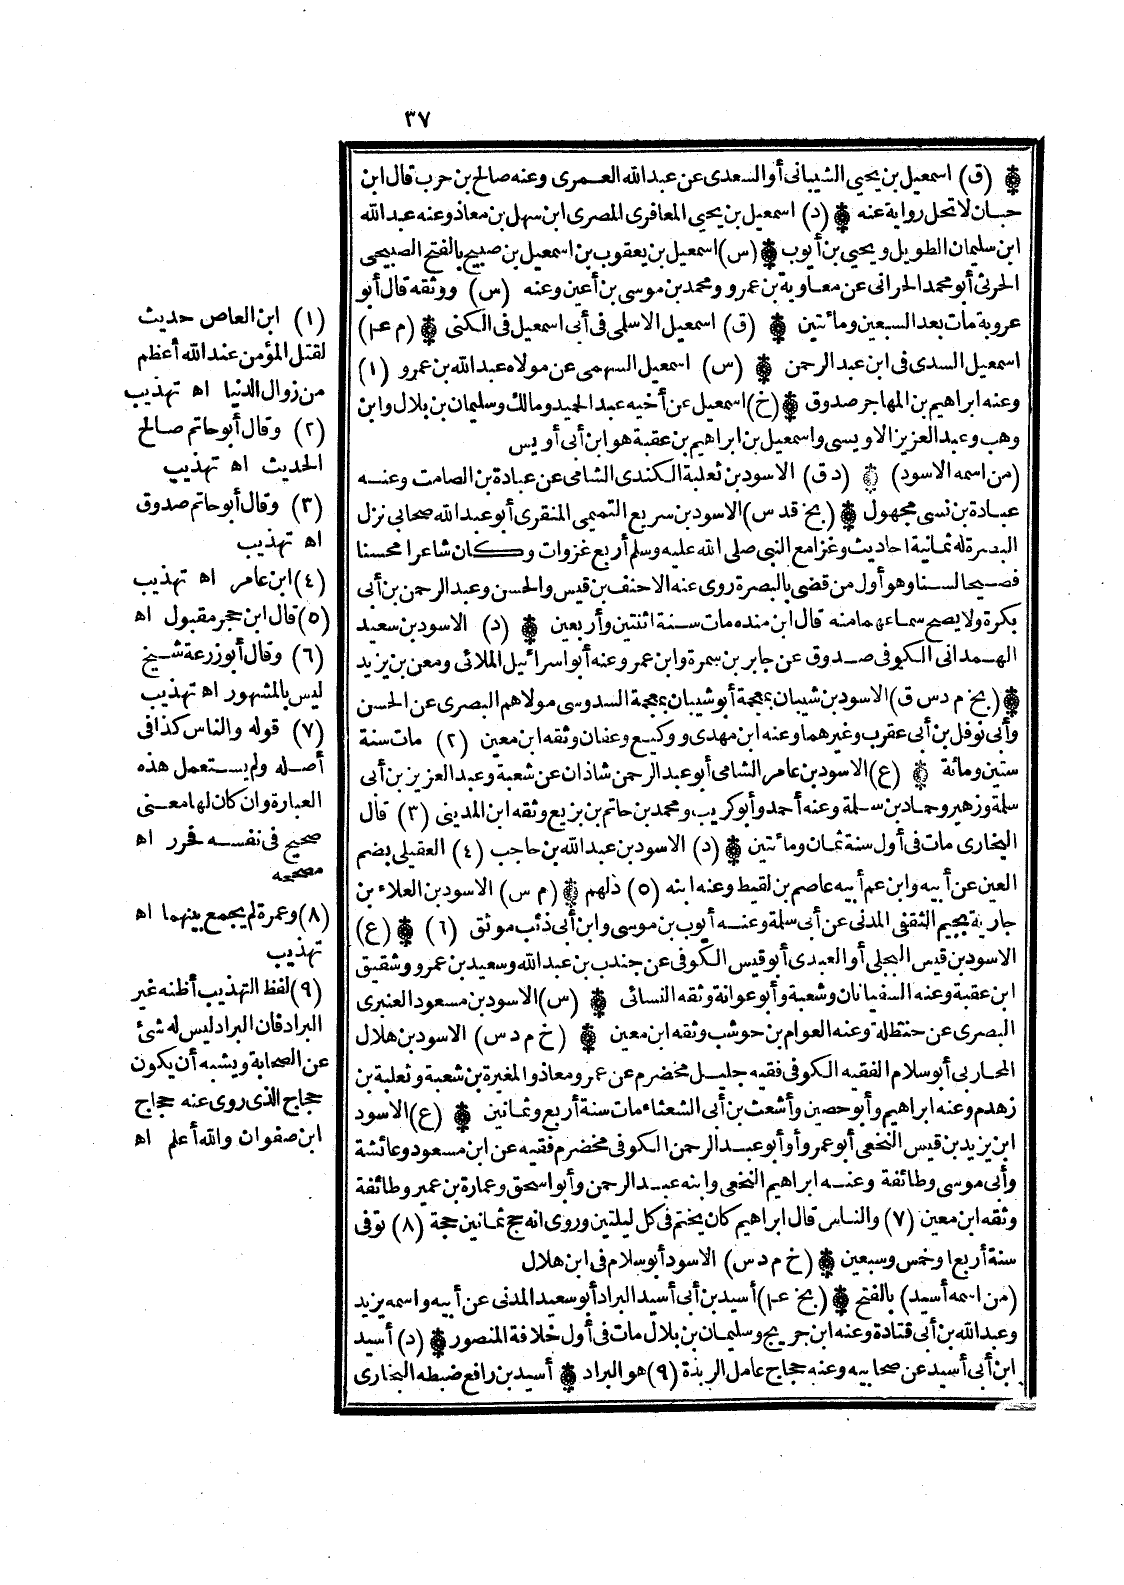 ٣٧
(ق) اسمعيل بن يحيى الشيبانى أو السعدى عن عبد الله العمرى وعنه صالح بن حرب قال ابن
حبان لا تحل رواية عنه (د) اسمعيل بن يحيى المعافرى المصرى ابن سهل بن معاذ وعنه عبد الله
ابن سليمان الطويل ويحيى بن أيوب (س) اسمعيل بن يعقوب بن اسمعيل بن صبيح بالفتح الصبيحى
الحرنى أبو محمد الحرانى عن معاوية بن عمرو ومحمد بن موسى بن أعين وعنه (س) ووثقه قال أبو
عروبة مات بعد السبعين ومائتين (ق) اسمعيل الاسلمى فى أبى اسمعيل فى الكنى (م عـ)
اسمعيل السدى فى ابن عبد الرحمن (س) اسمعيل السهمى عن مولاه عبد الله بن عمرو (١)
وعنه ابراهيم بن المهاجر صدوق (خ) اسمعيل عن أخيه عبد الحميد ومالك وسليمان بن بلال وابن
وهب وعبد العزيز الاويسى واسمعيل بن ابراهيم بن عقبة هو ابن أبى أويس
(من اسمه الاسود) (د ق) الاسود بن ثعلبة الكندى الشامى عن عبادة بن الصامت وعنه
عبادة بن نسى مجهول (بخ قد س) الاسود بن سريع التميمى المنقرى أبو عبد الله صحابى نزل
البصرة له ثمانية احاديث وغزا مع النبى صلى الله عليه وسلم أربع غزوات وكان شاعرا محسنا
فصيحا لسنا وهو أول من قضى بالبصرة روى عنه الاحنف بن قيس والحسن وعبد الرحمن بن أبى
بكرة ولا يصح سماعهما منه قال ابن منده مات سنة اثنتين وأربعين (د) الاسود بن سعيد
الهمدانى الكوفى صدوق عن جابر بن سمرة وابن عمر وعنه أبو اسرائيل الملائى ومعن بن يزيد
(بخ م د س ق) الاسود بن شيبان بمعجمة أبو شيبان بمعجمة السدوسى مولاهم البصرى عن الحسن
وأبى نوفل بن أبى عقرب وغيرهما وعنه ابن مهدى ووكيع وعفان وثقه ابن معين (٢) مات سنة
ستين ومائة (ع) الاسود بن عامر الشامى أبو عبد الرحمن شاذان عن شعبة وعبد العزيز بن أبى
سلمة وزهير وحماد بن سلمة وعنه أحمد وأبو كريب ومحمد بن حاتم بن بزيع وثقه ابن المدينى (٣) قال
البخارى مات فى أول سنة ثمان ومائتين (د) الاسود بن عبد الله بن حاجب (٤) العقيلى بضم
العين عن أبيه وابن عم أبيه عاصم بن لقيط وعنه ابنه (٥) دلهم (م س) الاسود بن العلاء بن
جارية بجيم الثقفى المدنى عن أبى سلمة وعنه أيوب بن موسى وابن أبى ذئب موثق (٦) (ع)
الاسود بن قيس البجلى أو العبدى أبو قيس الكوفى عن جندب بن عبد الله وسعيد بن عمرو وشقيق
ابن عقبة وعنه السفيانان وشعبة وأبو عوانة وثقه النسائى (س) الاسود بن مسعود العنبرى
البصرى عن حنتظلة وعنه العوام بن حوشب وثقه ابن معين (خ م د س) الاسود بن هلال
المحاربى أبو سلام الفقيه الكوفى فقيه جليل مخضرم عن عمر ومعاذ والمغيرة بن شعبة وثعلبة بن
زهدم وعنه ابراهيم وأبو حصين وأشعث بن أبى الشعثاء مات سنة أربع وثمانين (ع) الاسود
ابن يزيد بن قيس النخعى أبو عمرو أو أبو عبد الرحمن الكوفى مخضرم فقيه عن ابن مسعود وعائشة
وأبى موسى وطائفة وعنه ابراهيم النخعى وابنه عبد الرحمن وأبو اسحق وعمارة بن عمير وطائفة
وثقه ابن معين (٧) والناس قال ابراهيم كان يختم فى كل ليلتين وروى انه حج ثمانين حجة (٨) توفى
سنة أربع او خمس وسبعين (خ م د س) الاسود أبو سلام فى ابن هلال
(من اسمه أسيد) بالفتح (بخ عـ) أسيد بن أبى أسيد البراد أبو سعيد المدنى عن أبيه واسمه يزيد
وعبد الله بن أبى قتادة وعنه ابن جريج وسليمان بن بلال مات فى أول خلافة المنصور (د) أسيد
ابن أبى أسيد عن صحابيه وعنه حجاج عامل الربذة (٩) هو البراد أسيد بن رافع ضبطه البخارى
(١) ابن العاص حديث
لقتل المؤمن عند الله أعظم
من زوال الدنيا اه تهذيب
(٢) وقال أبو حاتم صالح
الحديث اه تهذيب
(٣) وقال أبو حاتم صدوق
اه تهذيب
(٤) ابن عامر اه تهذيب
(٥) قال ابن حجر مقبول اه
(٦) وقال أبو زرعة شيخ
ليس بالمشهور اه تهذيب
(٧) قوله والناس كذا فى
أصله ولم يستعمل هذه
العبارة وان كان لها معنى
صحيح فى نفسه فحرر اه
مصححه
(٨) وعمرة لم يجمع بينهما اه
تهذيب
(٩) لفظ التهذيب أظنه غير
البراد فان البراد ليس له شئ
عن الصحابة ويشبه أن يكون
حجاج الذى روى عنه حجاج
ابن صفوان والله أعلم اه